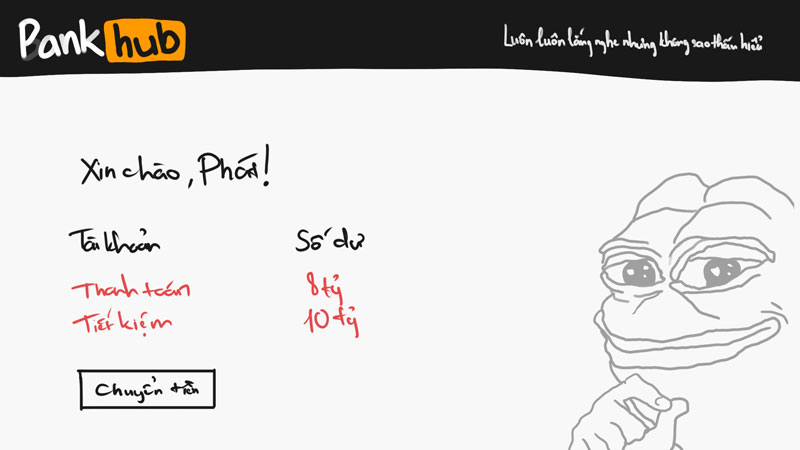 Bank hub
Luôn luôn lắng nghe nhưng không sao thấu hiểu
Xin chào, Phát!
Tài khoản Số dư
Thanh toán 8 tỷ
Tiết kiệm 10 tỷ
Chuyển tiền